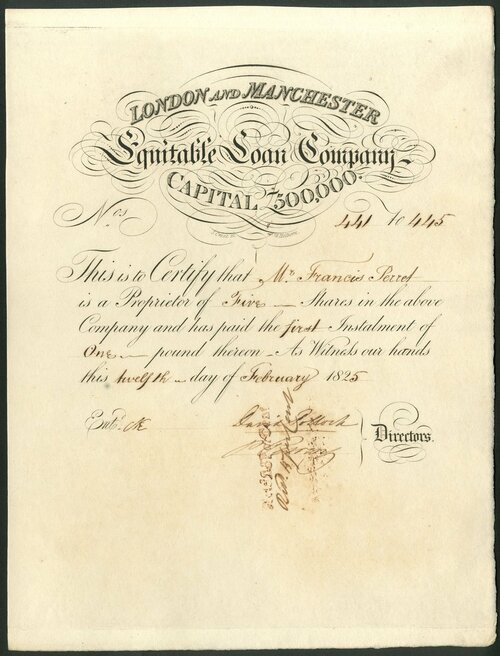 LONDON AND MANCHESTER
Equitable Loan Company
CAPITAL £500,000.
Nos 441 to 445
This is to Certify that Mr. Francis Perret
is a Proprietor of Five Shares in the above
Company and has paid the first Instalment of
One pound thereon As Witness our hands
this twelfth day of February 1825
Entd.
David Pollock
Directors.